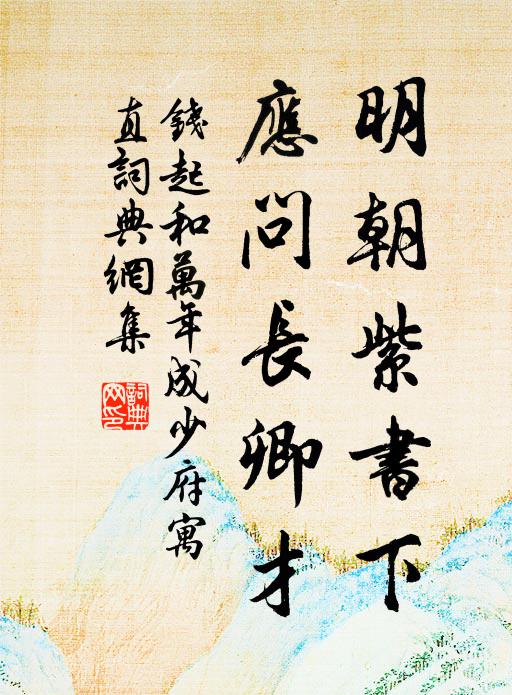 明朝紫書下
應問長卿才
錢起和萬年成少府寓
直詞典網集
詞典網印